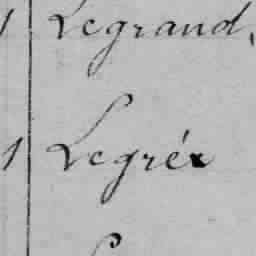 1 Legrand,
1 Legréx